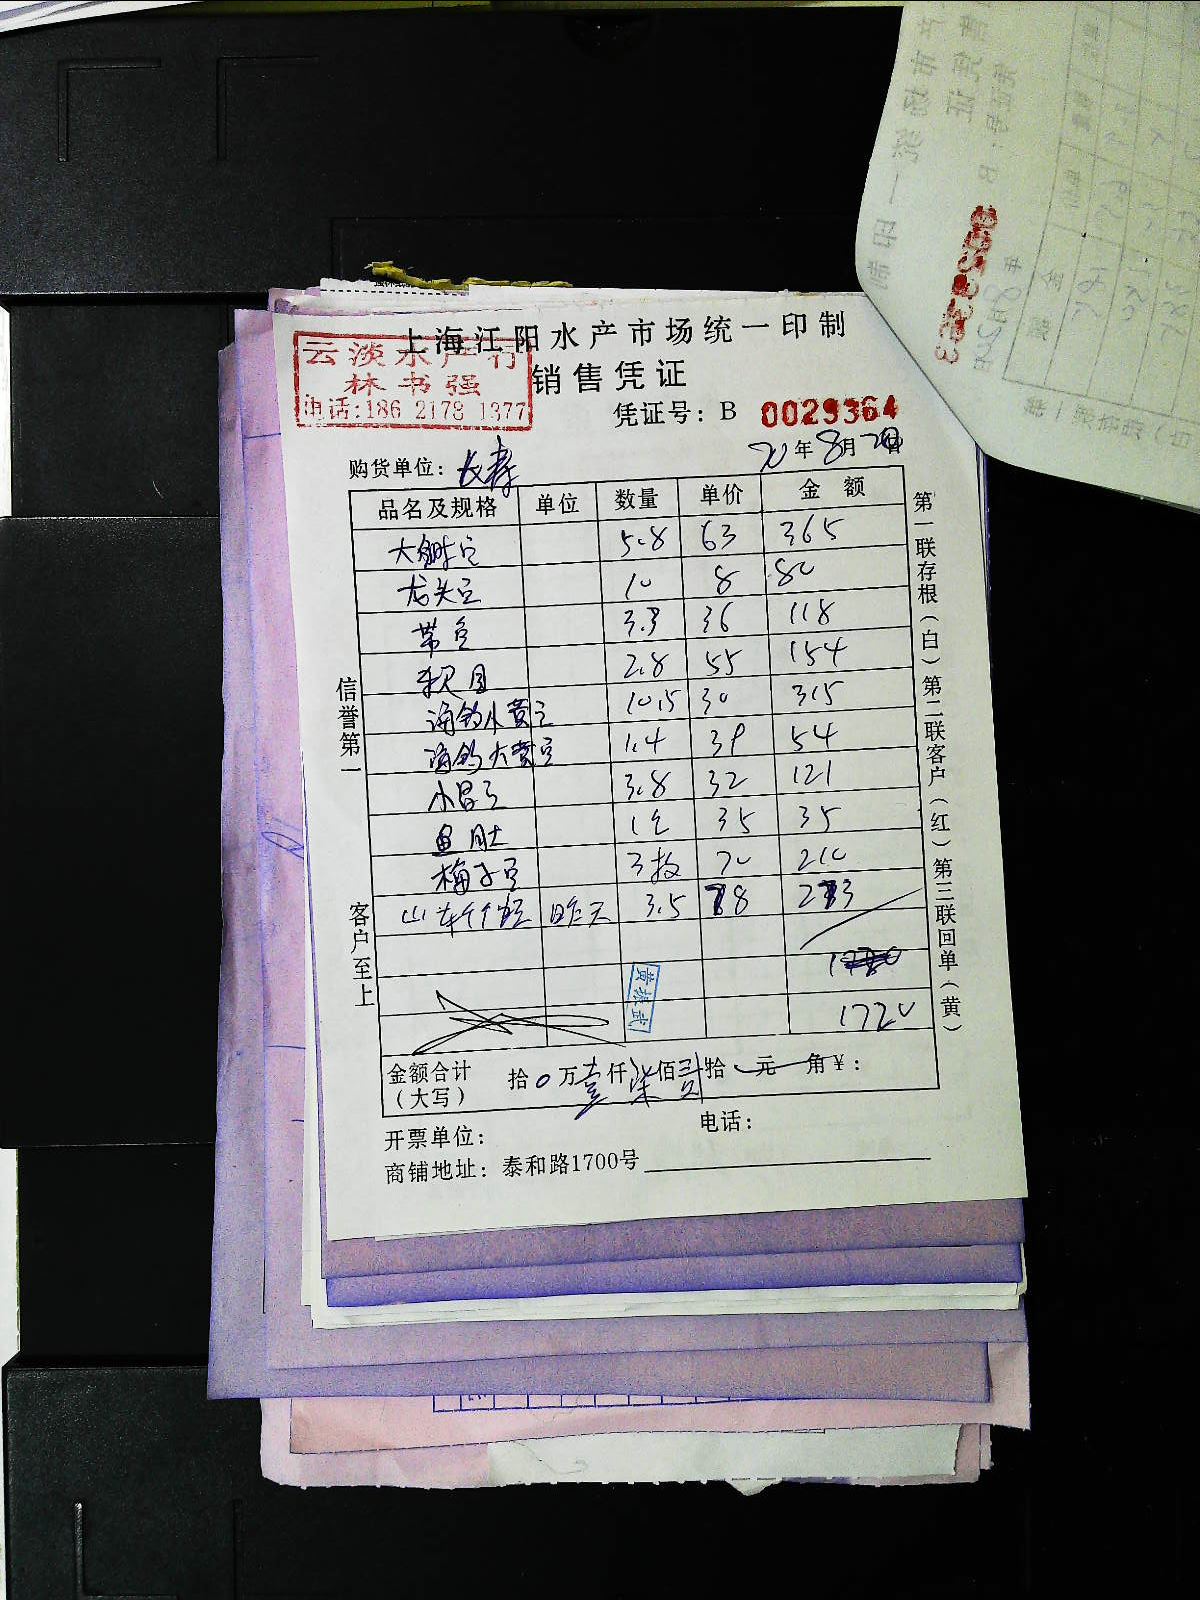 上海江阳水产市场统一印制
云淡水产行
林书强
电话:186 2178 1377
销售凭证
凭证号: B 0029364
20年8月20日
购货单位: 长寿
品名及规格 单位 数量 单价 金额
大鲫鱼 5.8 63 365
龙头鱼 10 8 80
带鱼 3.3 36 118
2.8 55 154
海钓小黄鱼 10.5 30 315
海钓大黄鱼 1.4 39 54
小昌鱼 3.8 32 121
鱼肚 1包 35 35
梅子鱼 3板 70 210
山东 昨天 3.5 78 273
1720
黄振武
金额合计 拾0万壹仟柒佰贰拾 元 角¥:
(大写)
开票单位: 电话:
商铺地址: 泰和路1700号
信誉第一
客户至上
第一联存根(白)第二联客户(红)第三联回单(黄)